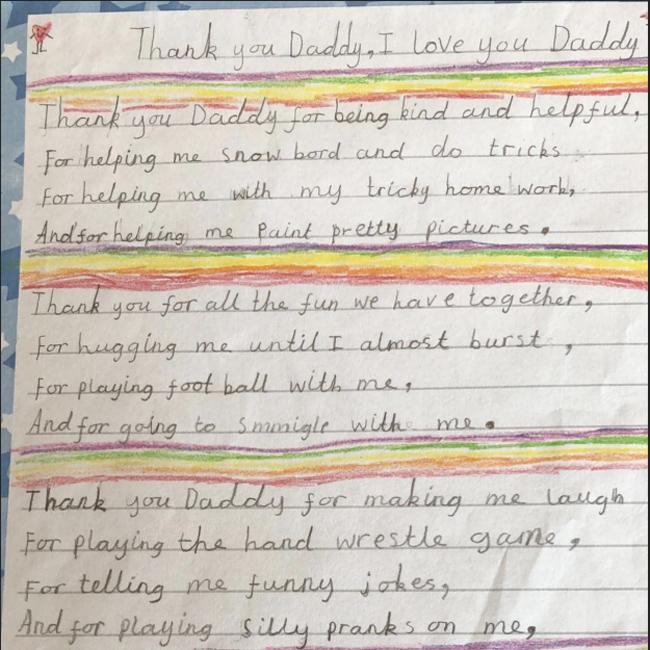 Thank you Daddy, I love you Daddy
Thank you Daddy for being kind and helpful,
For helping me snow bord and do tricks
For helping me with my tricky home work,
And for helping me Paint pretty pictures.
Thank you for all the fun we have together,
For hugging me until I almost burst ,
For playing foot ball with me,
And for going to smmigle with me.
Thank you Daddy for making me laugh
For playing the hand wrestle game,
For telling me funny jokes,
And for playing silly pranks on me,